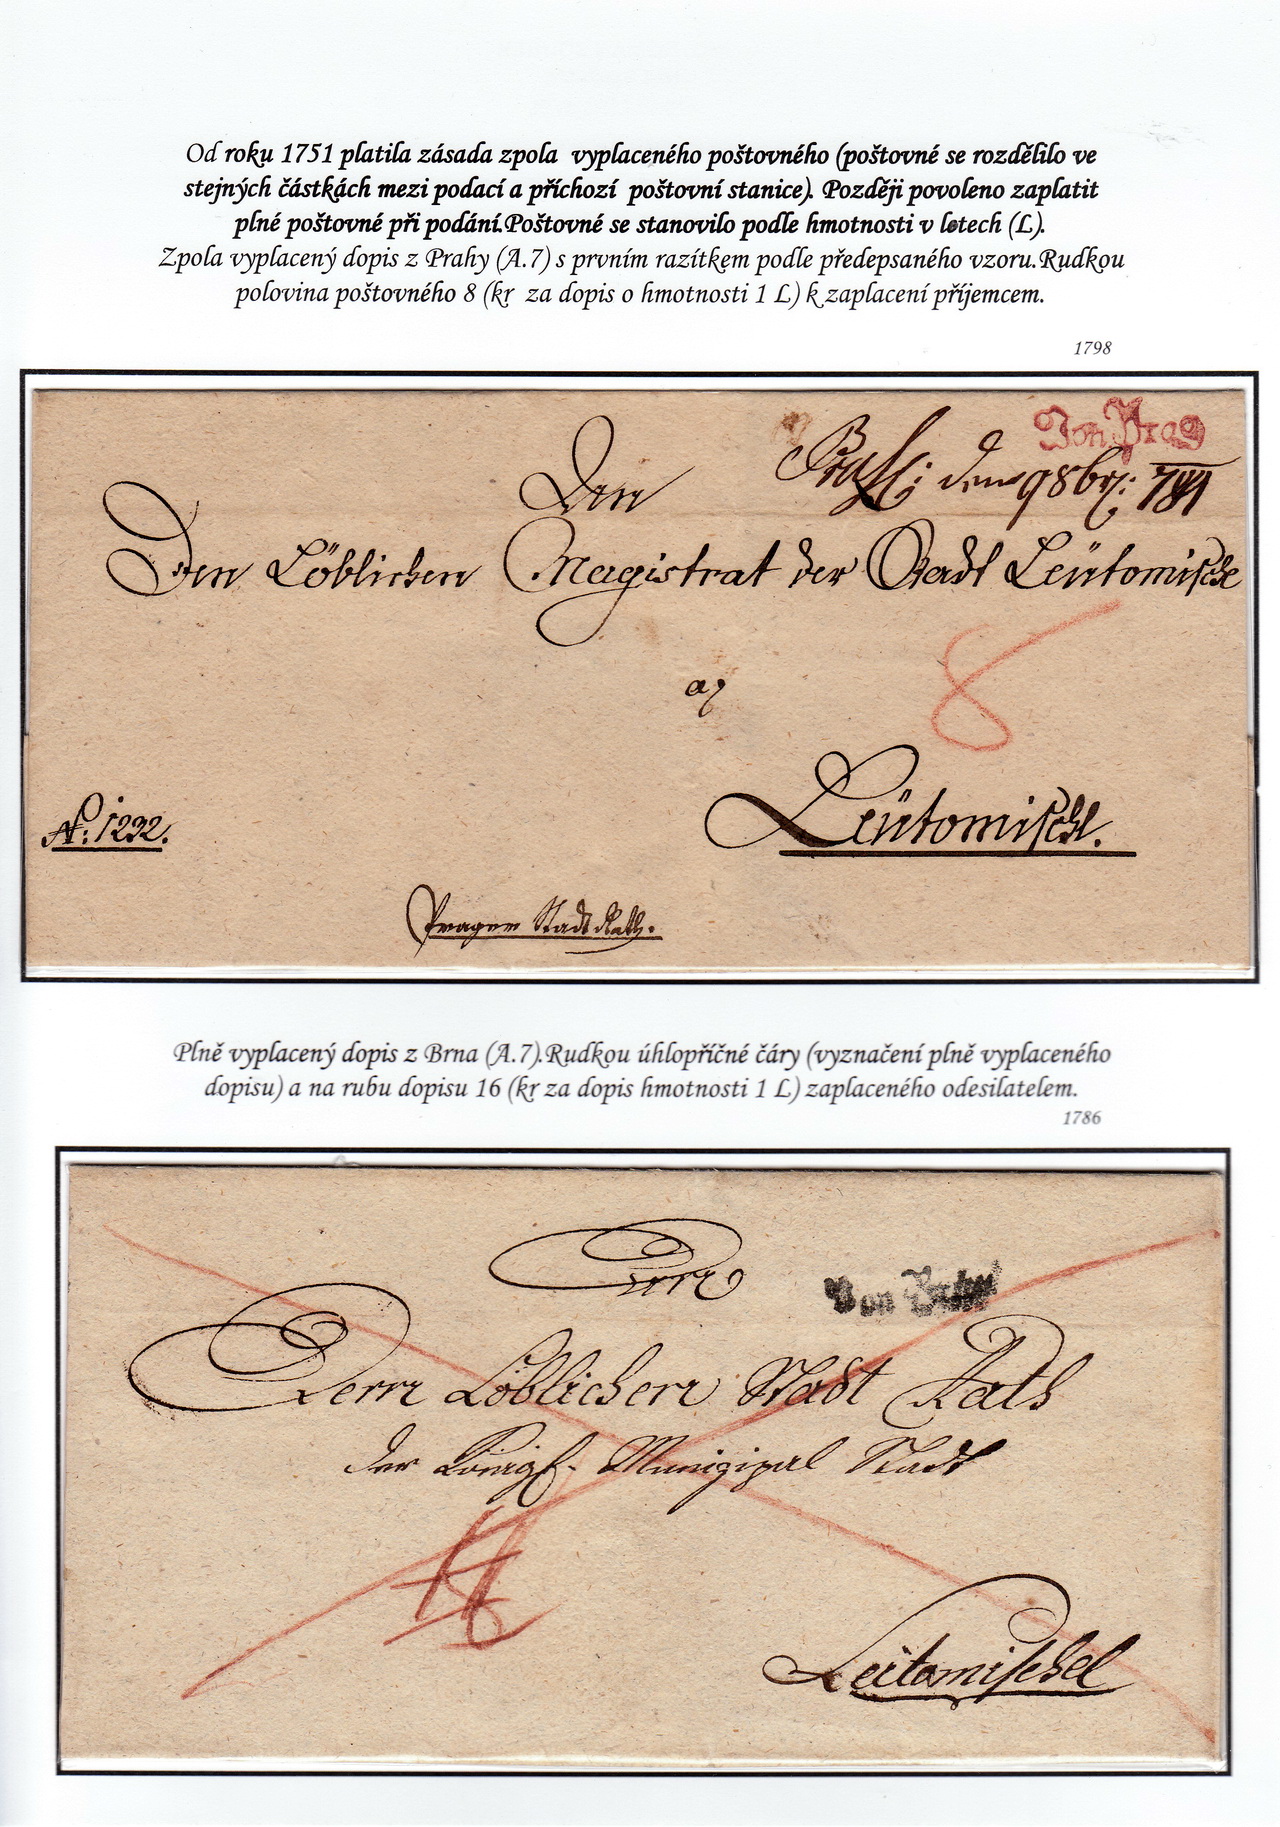 Od roku 1751 platila zásada zpola vyplaceného poštovného (poštovné se rozdělilo ve
stejných částkách mezi podací a příchozí poštovní stanice). Později povoleno zaplatit
plné poštovné při podání.Poštovné se stanovilo podle hmotnosti v lotech (L).
Zpola vyplacený dopis z Prahy (A.7) s prvním razítkem podle předepsaného vzoru.Rudkou
polovina poštovného 8 (kr za dopis o hmotnosti 1 L) k zaplacení příjemcem.
1798
Von Prag
Den
den 98br:
Den Löblichen Magistrat der Stadt Leütomischl
8
a
Leütomischl.
No: 1232.
Prager Stadt Rath.
Plně vyplacený dopis z Brna (A.7).Rudkou úhlopříčné čáry (vyznačení plně vyplaceného
dopisu) a na rubu dopisu 16 (kr za dopis hmotnosti 1 L) zaplaceného odesilatelem.
1786
Von Brünn
Denn Löblichenn Stadt Rath
der Königl. Munizipal Stadt
Leitomischel